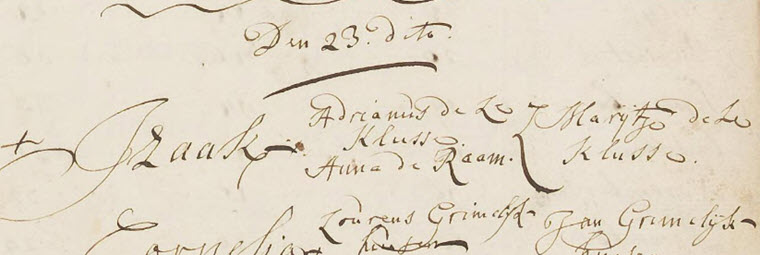 Den 23. dito.
+ Izaak. Adrianus de Le Klusse. Anna de Raam. Marijtje de Le Klusse.
Cornelia Lourens Grimelijk Jan Grimelijk